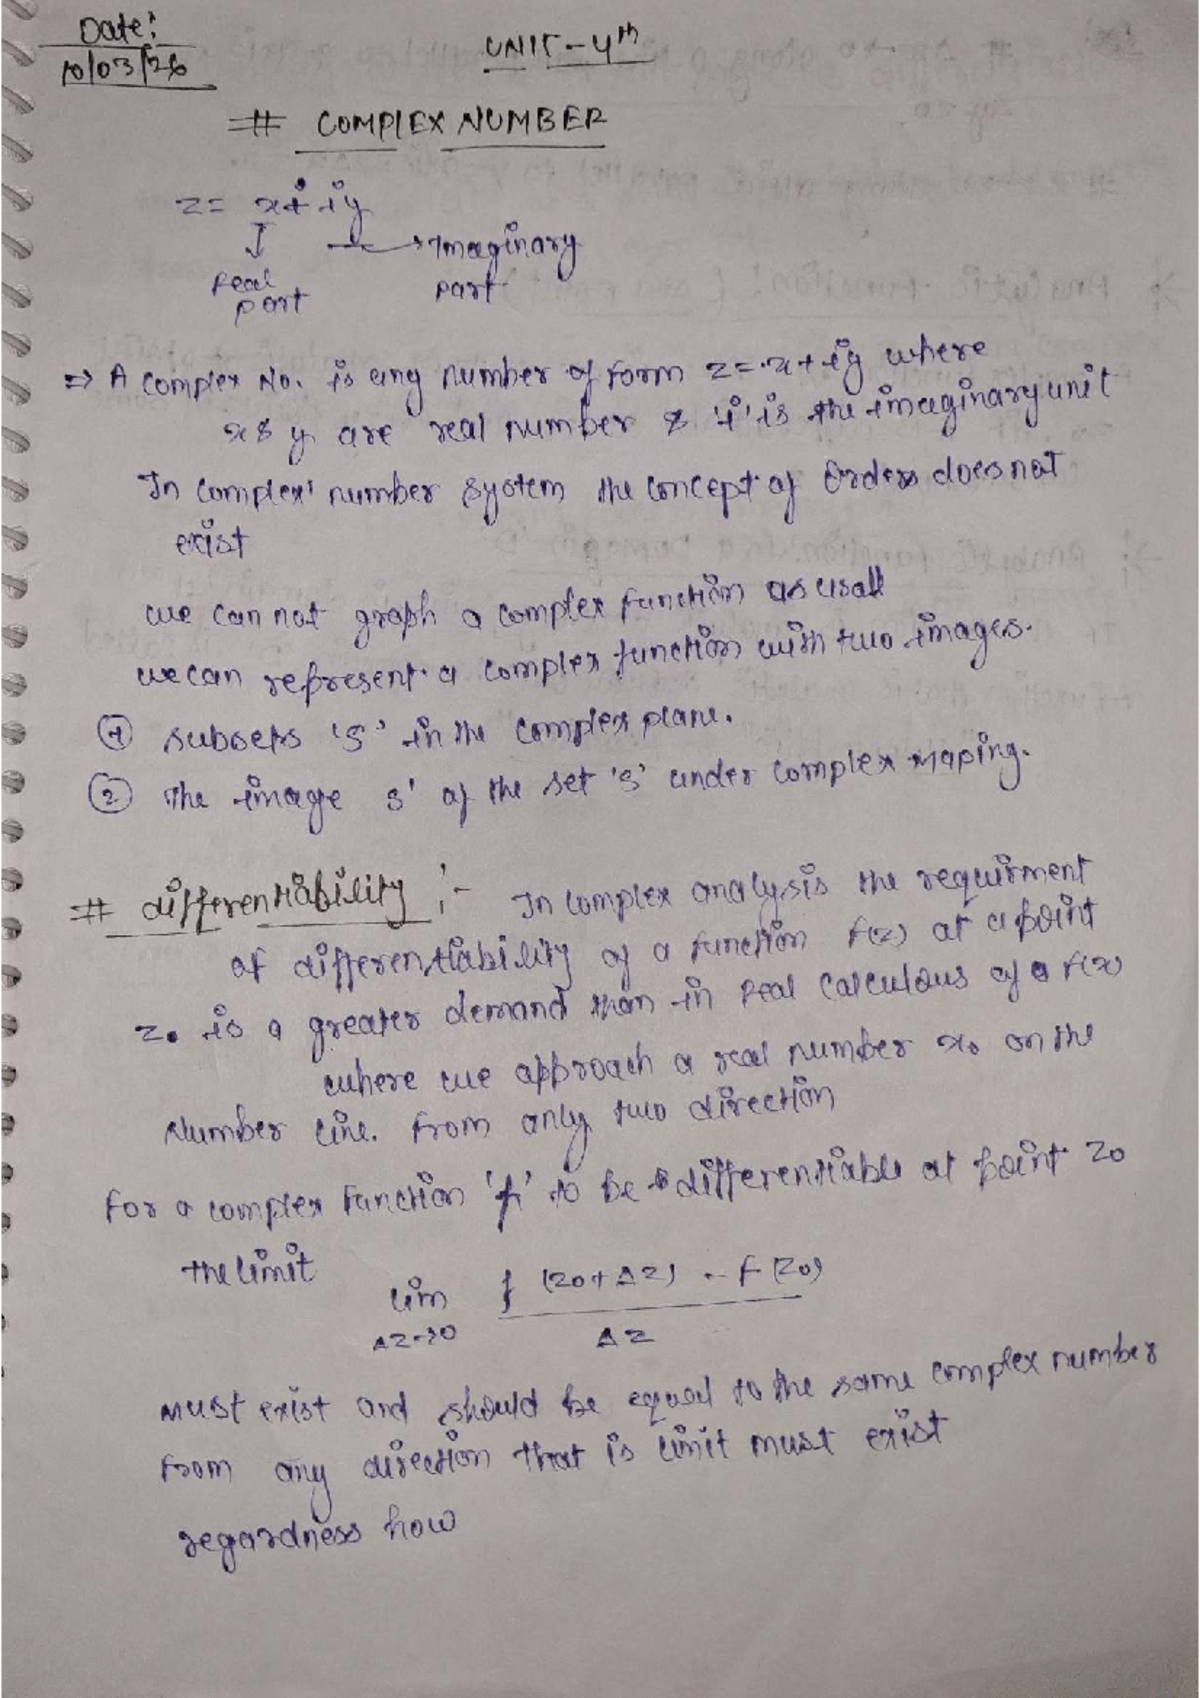 Date:
10/03/26
UNIT-4th
# COMPLEX NUMBER
z = x + iy
Imaginary
Real part
part
⇒ A complex No. is any number of form z = x + iy where
x & y are real number & 'i' is the imaginary unit
In complex number system the concept of Orders does not
exist
we can not graph a complex function as usall
we can represent a complex function with two images.
① subsets 'S' in the complex plane.
② The image s' of the set 's' under complex maping.
# differentiability :- In complex analysis the requirment
of differentiability of a function f(z) at a point
z₀ is a greater demand than in real calculous of a f(x)
where we approach a real number x₀ on the
Number line. From only two direction
For a complex function 'f' to be differentiable at point z₀
the limit
lim Δz→0 f(z₀+Δz) - f(z₀) / Δz
must exist and should be equal to the same complex number
from any direction that is limit must exist
regardness how